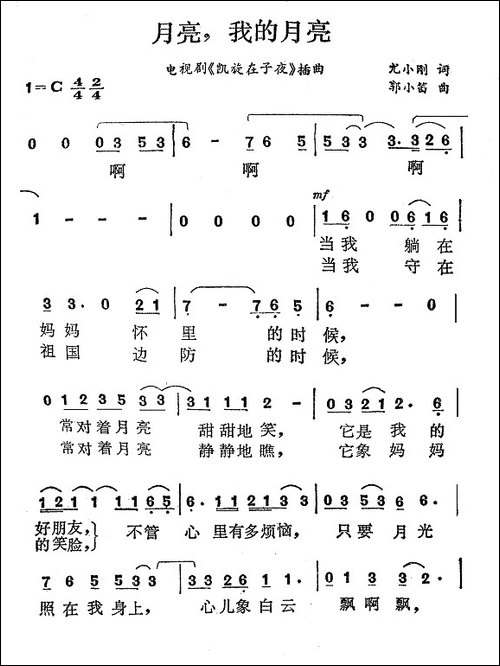 月亮，我的月亮
电视剧《凯旋在子夜》插曲
尤小刚 词
1=C 4/4 2/4
郭小笛 曲
0 0 03 53 | 6 - 76 5 | 533 3.326 |
啊 啊 啊
1 - - - | 0 0 0 0 | mf 16 0 0616 |
当我 躺在
当我 守在
33. 0 21 | 7 - - 765 | 6 - - 0 |
妈妈 怀里 的时候，
祖国 边防 的时候，
0 123 533 | 3111 2 - | 0321 2. 6 |
常对着月亮 甜甜地笑， 它是我的
常对着月亮 静静地瞧， 它象妈妈
121 1 1165 | 6. 112133 | 0353 6 6. |
好朋友，} 不管 心里有多烦恼， 只要月光
的笑脸，
765 533 | 33261 1 | 013 3 32 |
照在我身上， 心儿象白云 飘啊飘，